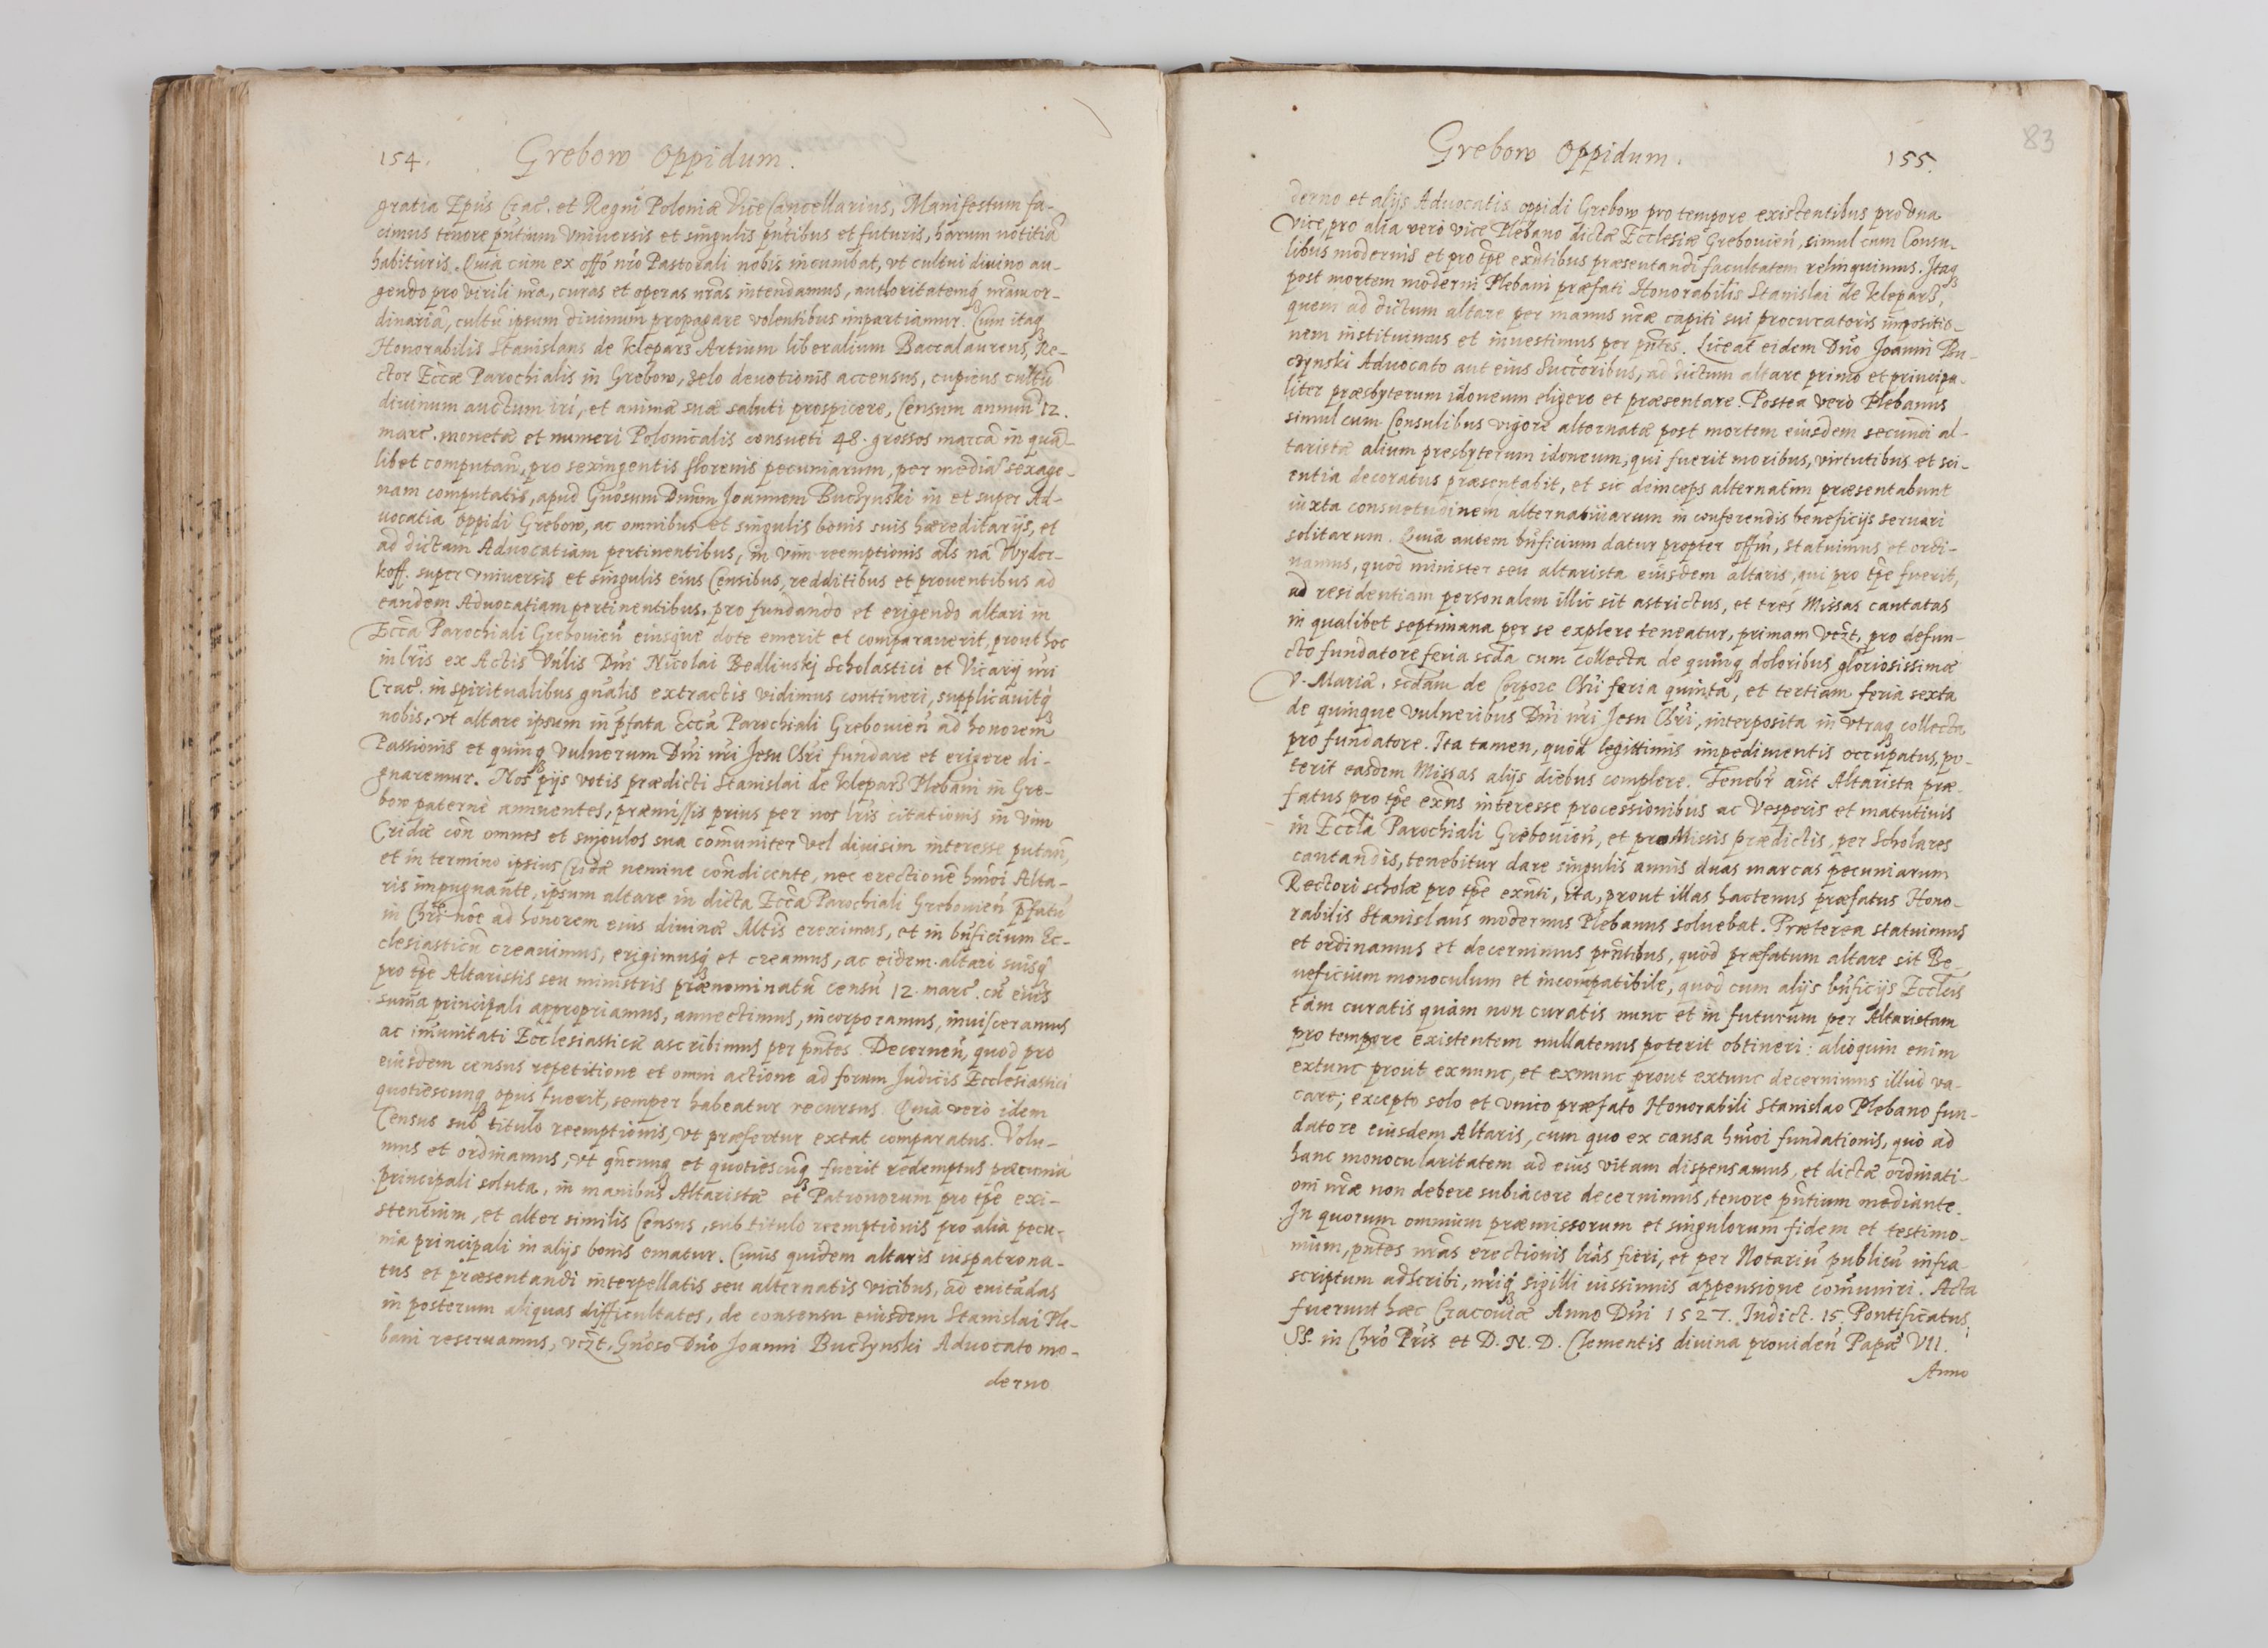 154. Grebow Oppidum.
gratia Epus Crac. et Regni Poloniæ Vice Cancellarius, Manifestum fa-
cimus tenore pntium vniuersis et singulis pntibus et futuris, harum notitiã
habituris. Quia cùm ex offo nro Pastorali nobis incumbat, vt cultui diuino au-
gendo pro virili nra, curas et operas nras intendamus, authoritatemq nram or-
dinariã, cultũ ipsum diuinum propagare volentibus impartiamur. Cum itaq
Honorabilis Stanislaus de Klepars Artium liberalium Baccalaureus, Re-
ctor Eccæ Parochialis in Grebow, zelo deuotionis accensus, cupiens cultũ
diuinum auctum iri, et animæ suæ saluti prospicere, Censum annuũ 12.
marc. monetæ et numeri Polonicalis consueti 48. grossos marcã in quã-
libet computan, pro sexingentis florenis pecuniarum, per mediã sexage-
nam computatis, apud Gnosum Dnum Joannem Buczynski in et super Ad-
uocatia oppidi Grebow, ac omnibus et singulis bonis suis hæreditarijs, et
ad dictam Aduocatiam pertinentibus, in vim reemptionis als nã Wyder-
koff. super vniuersis et singulis eius Censibus, redditibus et prouentibus ad
eandem Aduocatiam pertinentibus, pro fundando et erigendo altari in
Ecca Parochiali Grebouien eiusque dote emerit et comparauerit, prout hoc
in lris ex Actis Vnlis Dni Nicolai Bedlinskj Scholastici et Vicarij nri
Crac. in spiritualibus gnalis extractis vidimus contineri, supplicauitq
nobis, vt altare ipsum in pfata Ecca Parochiali Grebouien ad honorem
Passionis et quinq vulnerum Dni nri Jesu Chri fundare et erigere di-
gnaremur. Nos pijs votis prædicti Stanislai de Klepars Plebani in Gre-
bow paternè annuentes, præmissis prius per nos lris citationis in vim
Cridæ con omnes et singulos sua comuniter vel diuisim interesse putan,
et in termino ipsius Cridæ nemine condicente, nec erectione hmoi Alta-
ris impugnante, ipsum altare in dicta Ecca Parochiali Grebouien pfatũ
in Chri noe ad honorem eius diuinæ Altis ereximus, et in bnficium Ec-
clesiasticũ creauimus, erigimusq et creamus, ac eidem altari suisq
pro tpe Altaristis seu ministris prænominatũ censũ 12. marc. cũ eius
suma principali appropriamus, annectimus, incorporamus, inuisceramus
ac imunitati Ecclesiasticæ ascribimus per pntes. Decernen, quod pro
eiusdem census repetitione et omni actione ad forum Judicis Ecclesiastici
quotiescunq opus fuerit, semper habeatur recursus. Quia verò idem
Census sub titulo reemptionis, vt præfertur extat comparatus. Volu-
mus et ordinamus, vt qncunq et quotiescunq fuerit redemptus pæcunia
principali soluta, in manibus Altaristæ et Patronorum pro tpe exi-
stentium, et alter similis Census, sub titulo reemptionis pro alia pecu-
nia principali in alijs bonis ematur. Cuius quidem altaris iuspatrona-
tus et præsentandi interpellatis seu alternatis vicibus, ad euitãdas
in posterum aliquas difficultates, de consensu eiusdem Stanislai Ple-
bani reseruamus, vczt, Gnoso Dno Joanni Buczynski Aduocato mo-
derno
83
Grebow Oppidum. 155.
derno et alijs Aduocatis oppidi Grebow pro tempore existentibus pro vna
vice, pro alia verò vice Plebano dictæ Ecclesiæ Grebouien, simul cum Consu-
libus modernis et pro tpe exntibus præsentandi facultatem relinquimus. Itaq
post mortem moderni Plebani præfati Honorabilis Stanislai de Klepars,
quem ad dictum altare per manus nræ capiti sui procuratoris impositio-
nem instituimus et inuestimus per pntes. Liceat eidem Dno Joanni Bu-
czynski Aduocato aut eius Succoribus, ad dictum altare primò et principa-
liter præsbyterum idoneum eligere et præsentare. Postea verò Plebanus
simul cum Consulibus vigore alternatæ post mortem eiusdem secundi al-
taristæ alium presbyterum idoneum, qui fuerit moribus, virtutibus et sci-
entia decoratus præsentabit, et sic deinceps alternatim præsentabunt
iuxta consuetudinem alternatiuarum in conferendis beneficijs seruari
solitarum. Quia autem bnficium datur propter offm, statuimus et ordi-
namus, quod minister seu altarista eiusdem altaris, qui pro tpe fuerit,
ad residentiam personalem illic sit astrictus, et tres Missas cantatas
in qualibet septimana per se explere teneatur, primam vczt, pro defun-
cto fundatore feria scda cum collecta de quinq doloribus gloriosissimæ
V. Mariæ, scdam de Corpore Chri feria quinta, et tertiam feria sexta
de quinque vulneribus Dni nri Jesu Chri, interposita in vtraq collecta
pro fundatore. Ita tamen, quòd legittimis impedimentis occupatus, po-
terit easdem Missas alijs diebus complere. Tenebr aut Altarista præ-
fatus pro tpe exns interesse processionibus ac Vesperis et matutinis
in Eccla Parochiali Grebouien, et pro Missis prædictis, per Scholares
cantandis, tenebitur dare singulis annis duas marcas pecuniarum
Rectori scholæ pro tpe exnti, ita, prout illas hactenus præfatus Hono-
rabilis Stanislaus modernus Plebanus soluebat. Præterea statuimus
et ordinamus et decernimus pntibus, quòd præfatum altare sit Be-
neficium monoculum et incompatibile, quod cum alijs bnficijs Ecclcis
tàm curatis quàm non curatis nunc et in futurum per Altaristam
pro tempore existentem nullatenus poterit obtineri: alioquin enim
extunc prout exnunc, et exnunc prout extunc decernimus illud va-
care; excepto solo et vnico præfato Honorabili Stanislao Plebano fun-
datore eiusdem Altaris, cum quo ex causa hmoi fundationis, quò ad
hanc monocularitatem ad eius vitam dispensamus, et dictæ ordinati-
oni nræ non debere subiacere decernimus, tenore pntium mediante.
In quorum omnium præmissorum et singulorum fidem et testimo-
nium, pntes nras erectionis lras fieri, et per Notariũ publicũ infra-
scriptum adscribi, nriq sigilli iussimus appensione comuniri. Acta
fuerunt hæc Cracouiæ Anno Dni 1527. Indict. 15. Pontificatus
SS. in Chro Pris et D. N. D. Clementis diuina prouiden Papæ VII.
Anno